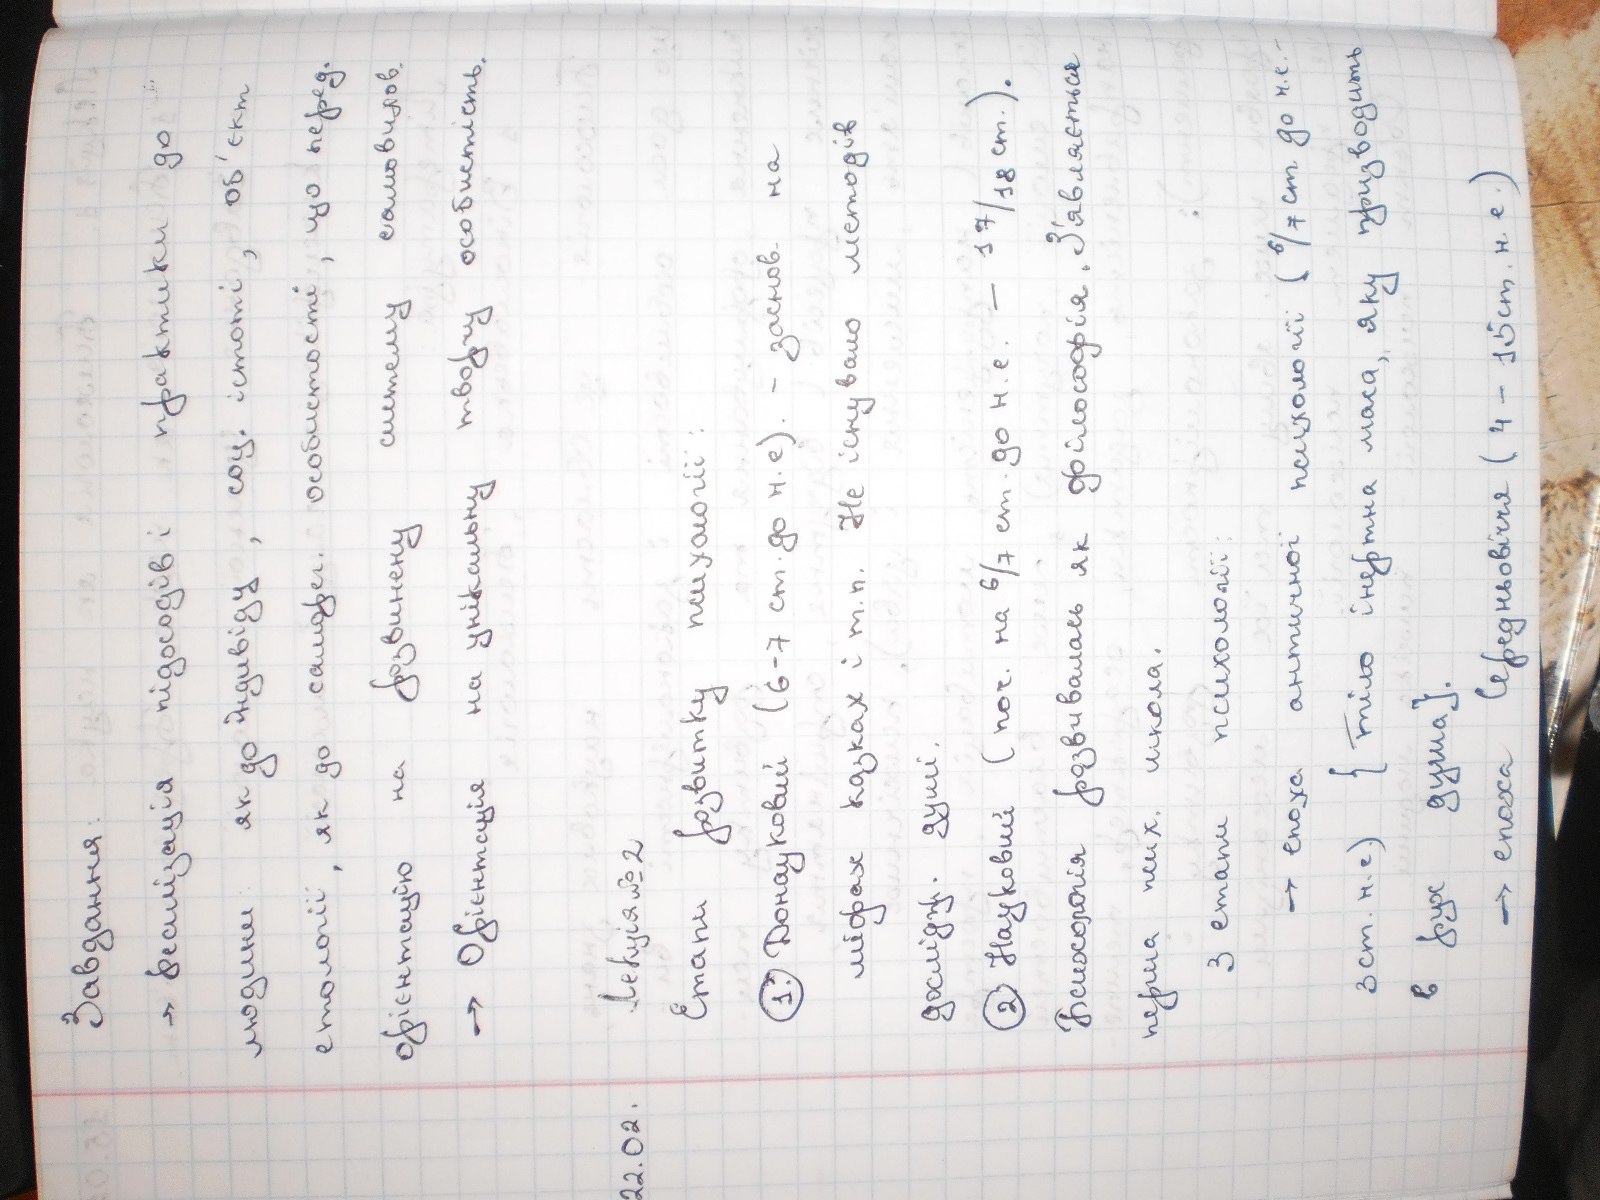 Завдання:
→ реалізація підходів і практики до
людини як до індивіду, соц. істоті, об'єкт
етології, як до саморег. особистості, що перед.
орієнтацію на розвинену систему самовихов.
→ Орієнтація на унікальну творчу особистість.
22.02. Лекція №2
Етапи розвитку психології:
1. Донауковий (6-7 ст. до н.е). - заснов. на
міфах казках і т.п. Не існувало методів
дослідж. душі.
2 Науковий (поч. на 6/7 ст. до н.е. — 17/18 ст.).
Психологія розвивалась як філософія. З'являється
перша псих. школа.
3 етапи психології:
→ епоха античної психології (6/7 ст до н.е. -
3 ст. н.е) [тіло інертна маса, яку призводить
в рух душа].
→ епоха Середньовіччя (4 - 15 ст. н.е.)